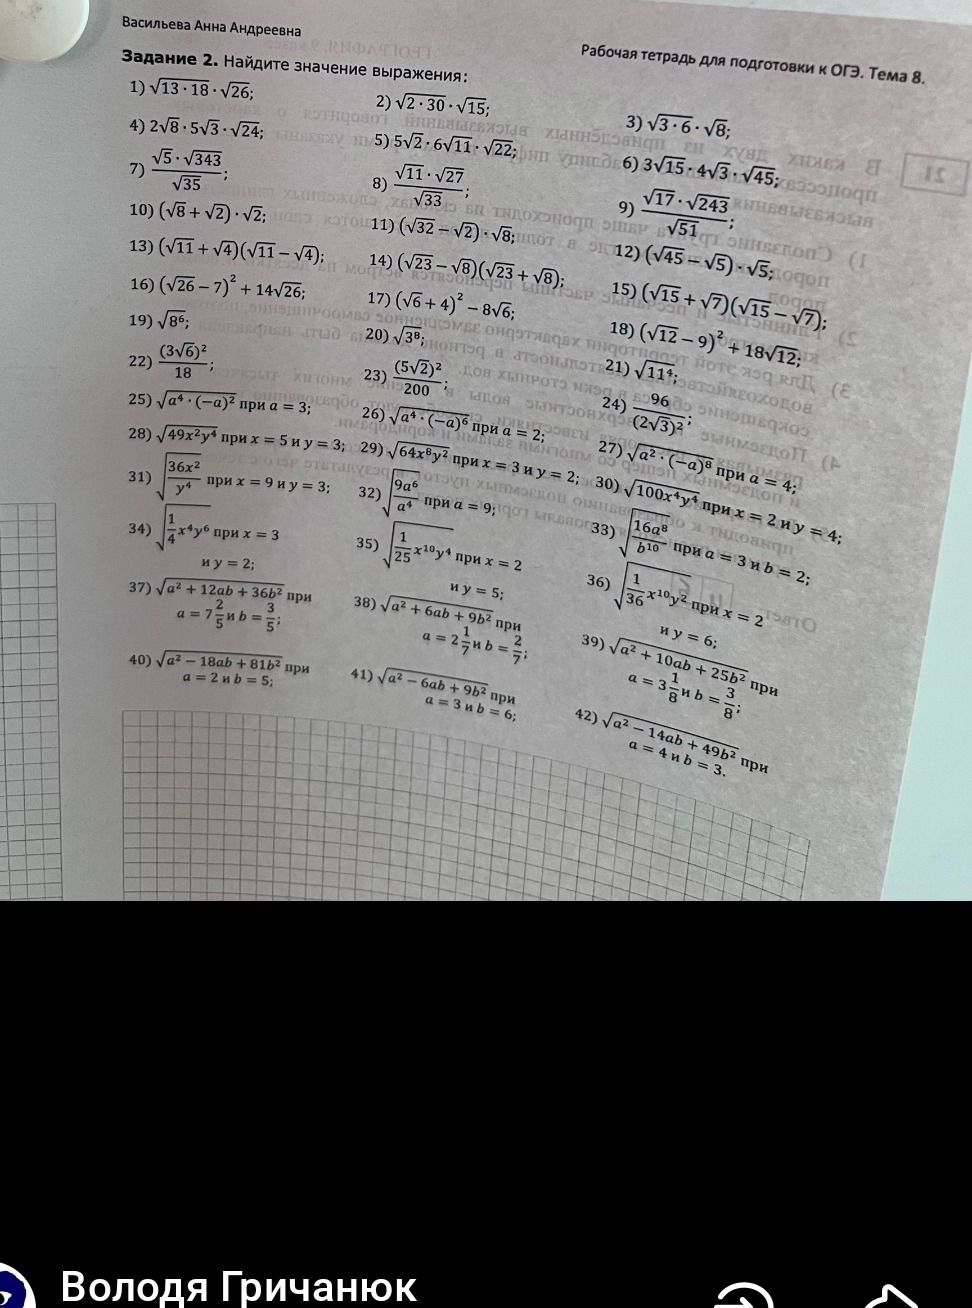 Васильева Анна Андреевна
Рабочая тетрадь для подготовки к ОГЭ. Тема 8.
Задание 2. Найдите значение выражения:
1) √(13 · 18) · √26; 2) √(2 · 30) · √15; 3) √(3 · 6) · √8;
4) 2√8 · 5√3 · √24; 5) 5√2 · 6√11 · √22; 6) 3√15 · 4√3 · √45;
7) (√5 · √343)/√35; 8) (√11 · √27)/√33; 9) (√17 · √243)/√51;
10) (√8 + √2) · √2; 11) (√32 − √2) · √8; 12) (√45 − √5) · √5;
13) (√11 + √4)(√11 − √4); 14) (√23 − √8)(√23 + √8); 15) (√15 + √7)(√15 − √7);
16) (√26 − 7)² + 14√26; 17) (√6 + 4)² − 8√6; 18) (√12 − 9)² + 18√12;
19) √(8⁶); 20) √(3⁸); 21) √(11⁴);
22) (3√6)²/18; 23) (5√2)²/200; 24) 96/(2√3)²;
25) √(a⁴ · (−a)²) при a = 3; 26) √(a⁴ · (−a)⁶) при a = 2; 27) √(a² · (−a)⁸) при a = 4;
28) √(49x²y⁴) при x = 5 и y = 3; 29) √(64x⁸y²) при x = 3 и y = 2; 30) √(100x⁴y⁴) при x = 2 и y = 4;
31) √(36x²/y⁴) при x = 9 и y = 3; 32) √(9a⁶/a⁴) при a = 9; 33) √(16a⁸/b¹⁰) при a = 3 и b = 2;
34) √(1/4 x⁴y⁶) при x = 3 35) √(1/25 x¹⁰y⁴) при x = 2 36) √(1/36 x¹⁰y²) при x = 2
и y = 2; и y = 5; и y = 6;
37) √(a² + 12ab + 36b²) при 38) √(a² + 6ab + 9b²) при 39) √(a² + 10ab + 25b²) при
a = 7 2/5 и b = 3/5; a = 2 1/7 и b = 2/7; a = 3 1/8 и b = 3/8;
40) √(a² − 18ab + 81b²) при 41) √(a² − 6ab + 9b²) при 42) √(a² − 14ab + 49b²) при
a = 2 и b = 5; a = 3 и b = 6; a = 4 и b = 3.
Володя Гричанюк